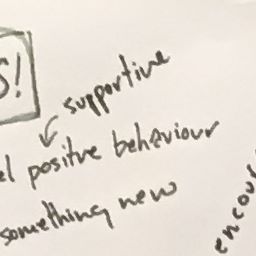 S!
supportive
el positive behaviour
something new
encour